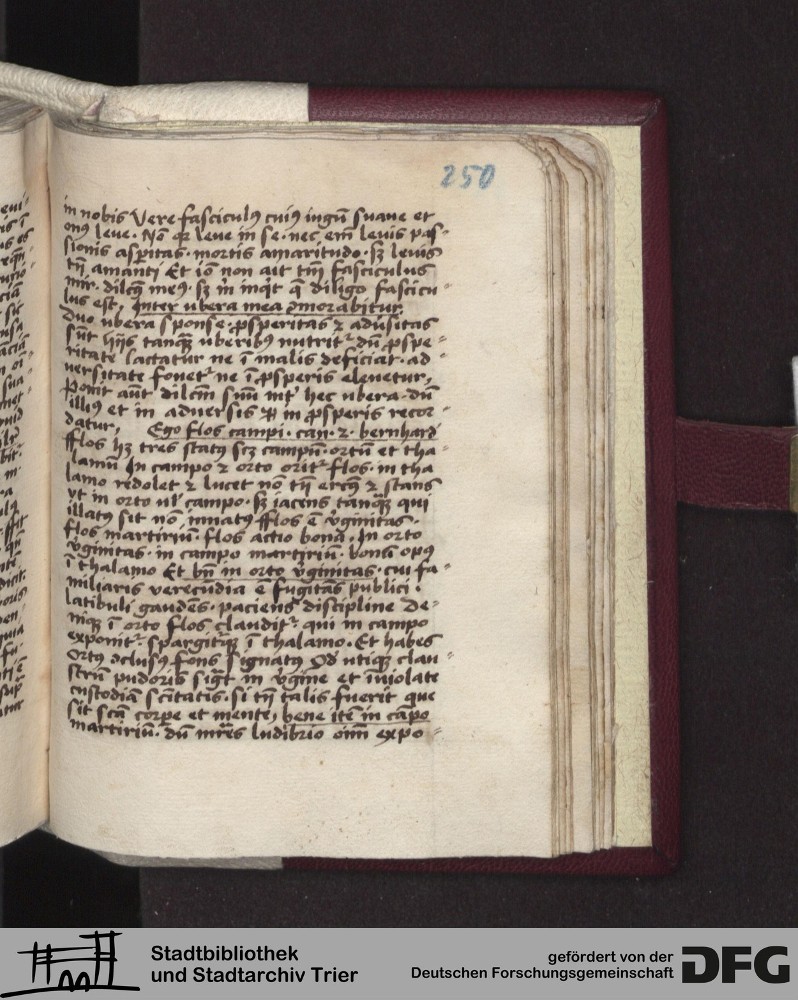 250
in nobis Vere fasciculꝰ cuiꝰ iugū suaue et
onꝰ leue. Nō qꝛ leue in se. nec em̄ leuis pas-
sionis asꝑitas. mortis amaritudo. sꝫ leuis
tn̄ amanti Et iō non ait tm̄ fasciculus
mir. dilcꝰ meꝰ. sꝫ in inqͥt q̄ diligo fascicu-
lus est. Inter ubera mea ↄmorabitur.
Duo ubera sponse. ꝓsperitas ⁊ aduʼsitas
sūt hijs tanqꝫ uberibꝰ nutritʳ dū ꝓspe-
ritate lactatur ne ī malis deficiat. ad-
uersitate fouetʳ ne ī ꝓsperis eleuetur,
Ponit aūt dilcm̄ suū int̓ hec ubera. dū
illiꝰ et in aduersis ⁊ in ꝓsperis recor-
datur, Ego flos campi. can. 2. bernhard
fflos hꝫ tres statꝰ scꝫ campū. ortū et tha
lamū In campo ⁊ orto oritʳ flos. in tha
lamo redolet ⁊ lucet nō tn̄ ercꝰ ⁊ stans
vt in orto ul̓ campo. sꝫ iacens tanqꝫ qui
illatꝰ sit nō innatꝰ fflos ē v̓ginitas.
flos martiriū. flos actio bona. In orto
v̓ginitas. in campo martiriū. bonū opꝰ
ī thalamo Et bn̄ in orto v̓ginitas. cui fa-
miliaris verecūdia ē fugitās publici.
latibuli gaudēs. paciens discipline De-
niqꝫ ī orto flos clauditʳ. qui in campo
exponitʳ. spargitʳqꝫ ī thalamo. Et habes
Ortꝰ ↄclusꝰ fons signatꝰ Qd utiqꝫ clau-
strū pudoris sigͣt in v̓gine et īuiolate
custodiā scītatis. si tn̄ talis fuerit que
sit scā corpe et mente, bene itē in cāpo
martiriū. dū mr̄es ludibrio oīm expo-
Stadtbibliothek
und Stadtarchiv Trier
gefördert von der
Deutschen Forschungsgemeinschaft
DFG